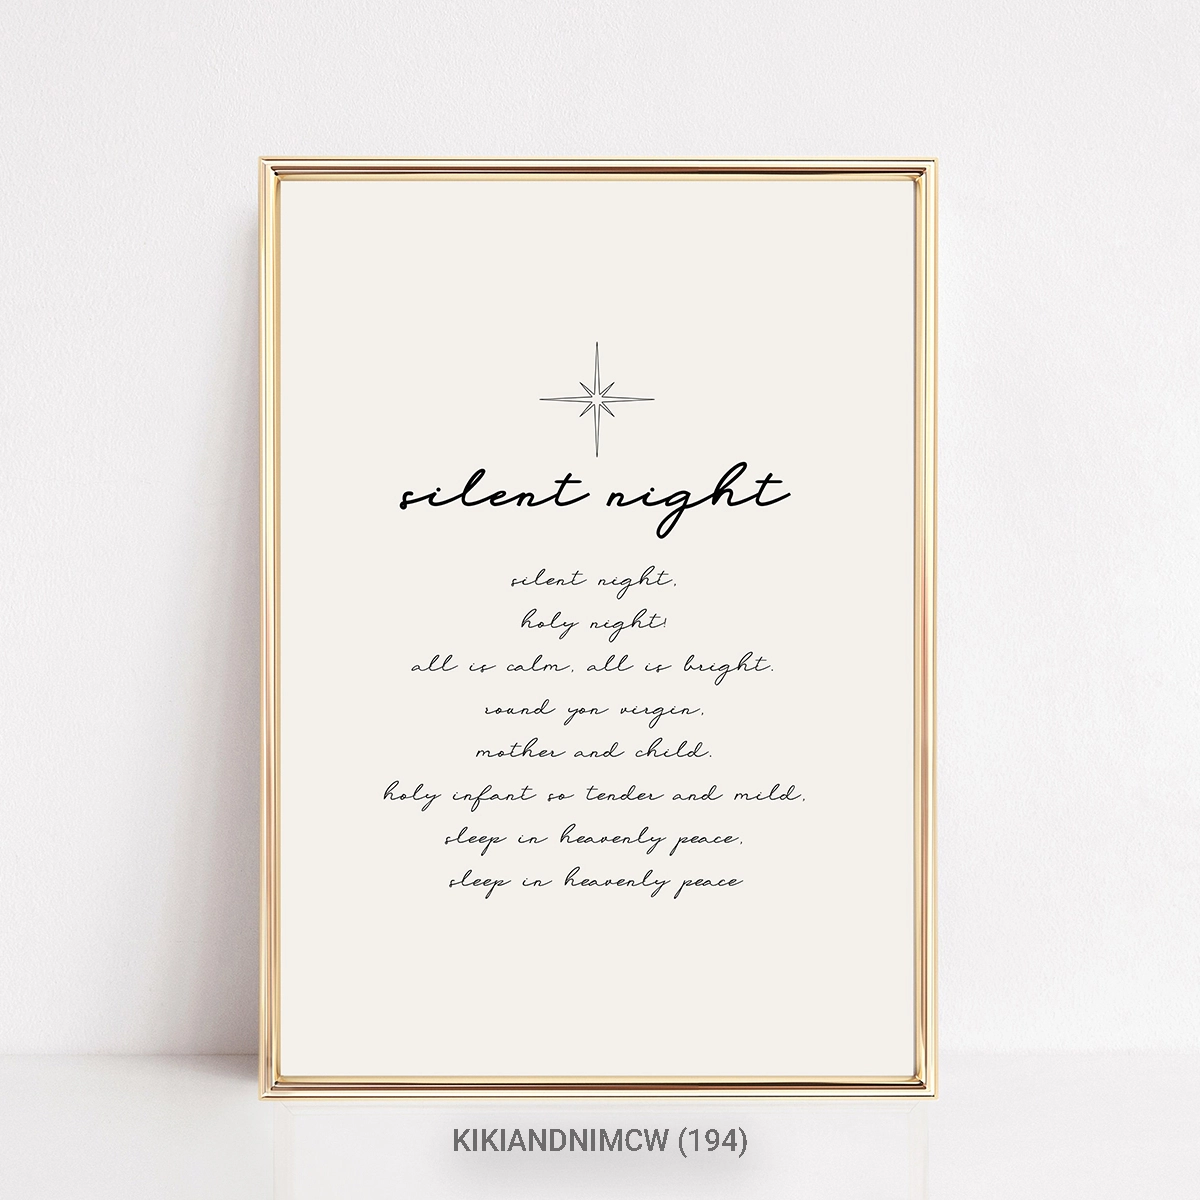 silent night
silent night,
holy night!
all is calm, all is bright.
round yon virgin,
mother and child.
holy infant so tender and mild,
sleep in heavenly peace,
sleep in heavenly peace
KIKIANDNIMCW (194)